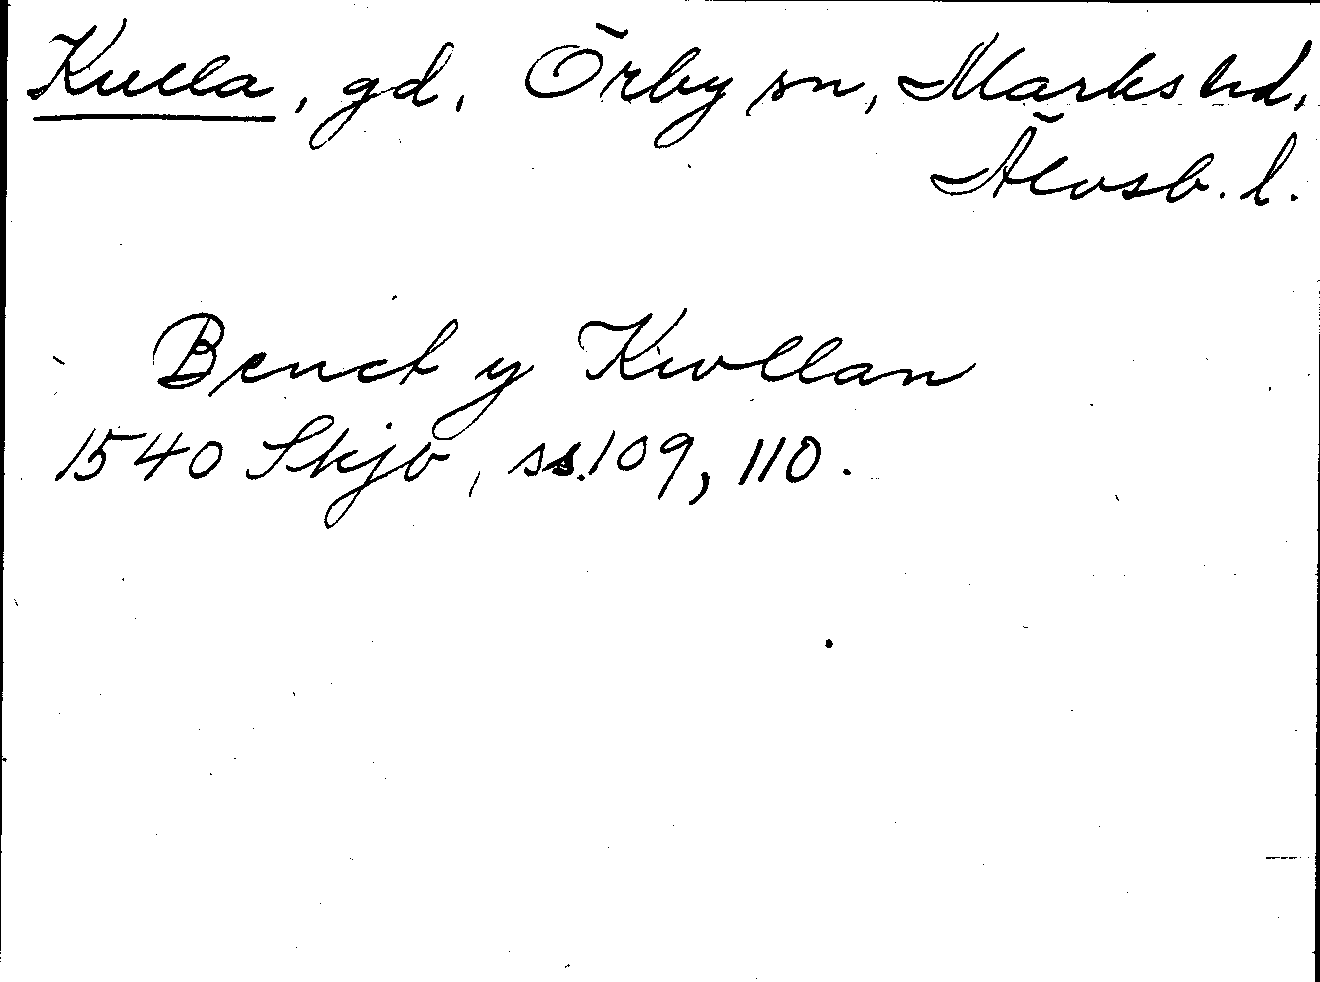 Kulla, gd, Örby sn, Marks hd,
Älvsb. l.
Benct y Kwllan
1540 Skjb, ss. 109, 110.